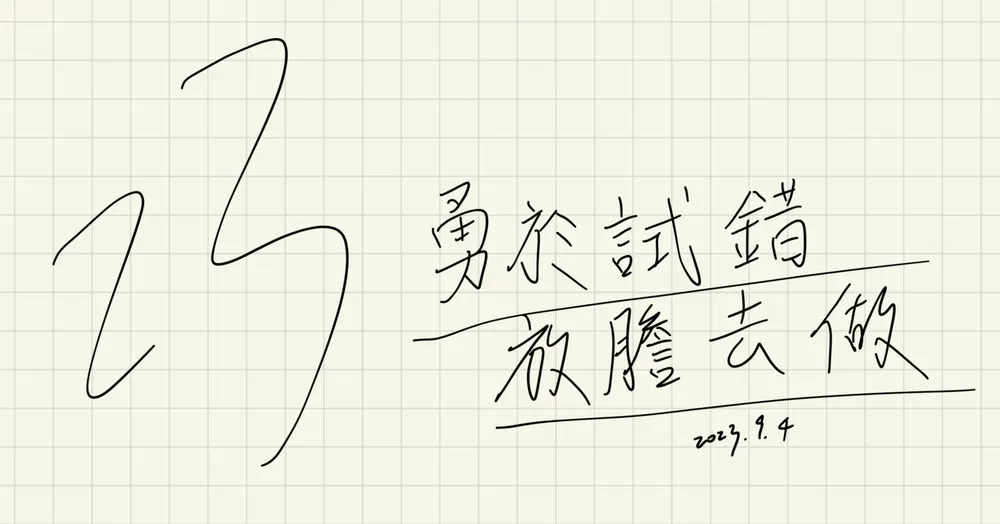 23
勇於試錯
放膽去做
2023.9.4